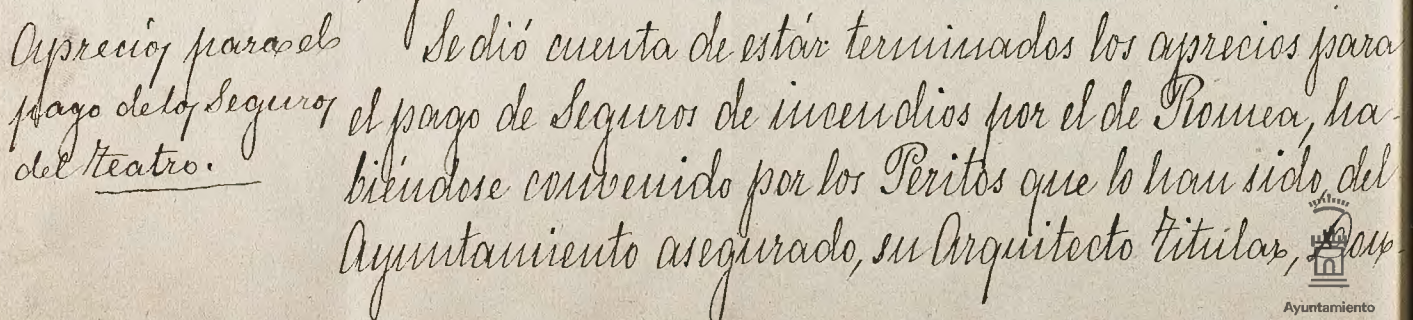 Aprecios para el
pago de los Seguros
del teatro.
Se dió cuenta de estár terminados los aprecios para
el pago de Seguros de incendios por el de Romea, ha-
biéndose convenido por los Peritos que lo han sido, del
Ayuntamiento asegurado, su Arquitecto titular, Don
Ayuntamiento